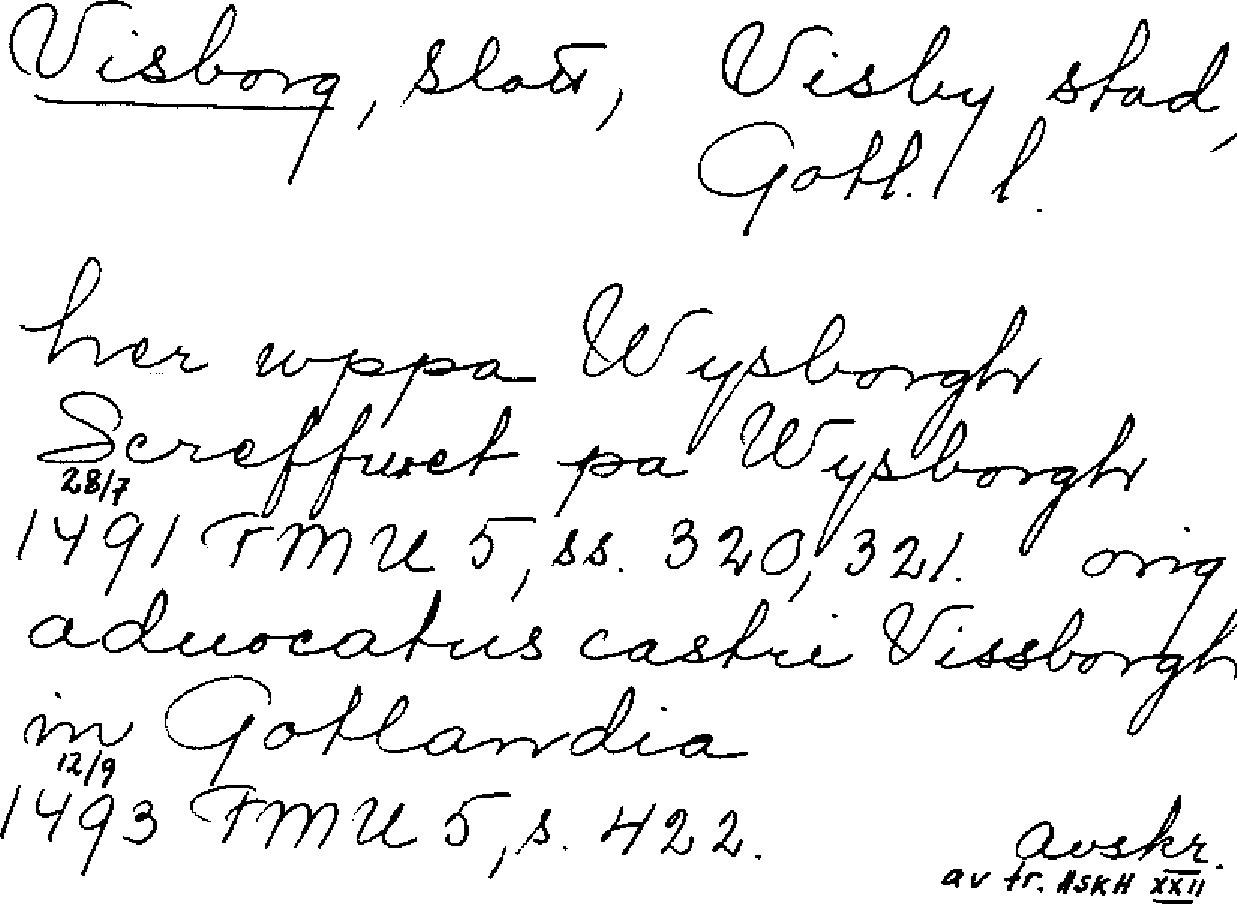 Visborg, slott, Visby stad,
Gotl. l.
her wppa Wysborgh
Screffwet pa Wysborgh
28/7
1491 FMU 5, ss. 320, 321. orig
aduocatus castri Vissborgh
in Gotlandia
12/9
1493 FMU 5, s. 422.
avskr.
av tr. HSKH XXII